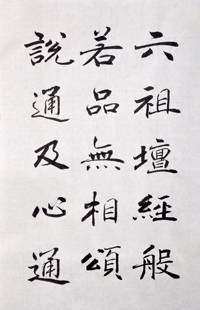 六祖壇經般
若品無相頌
說通及心通